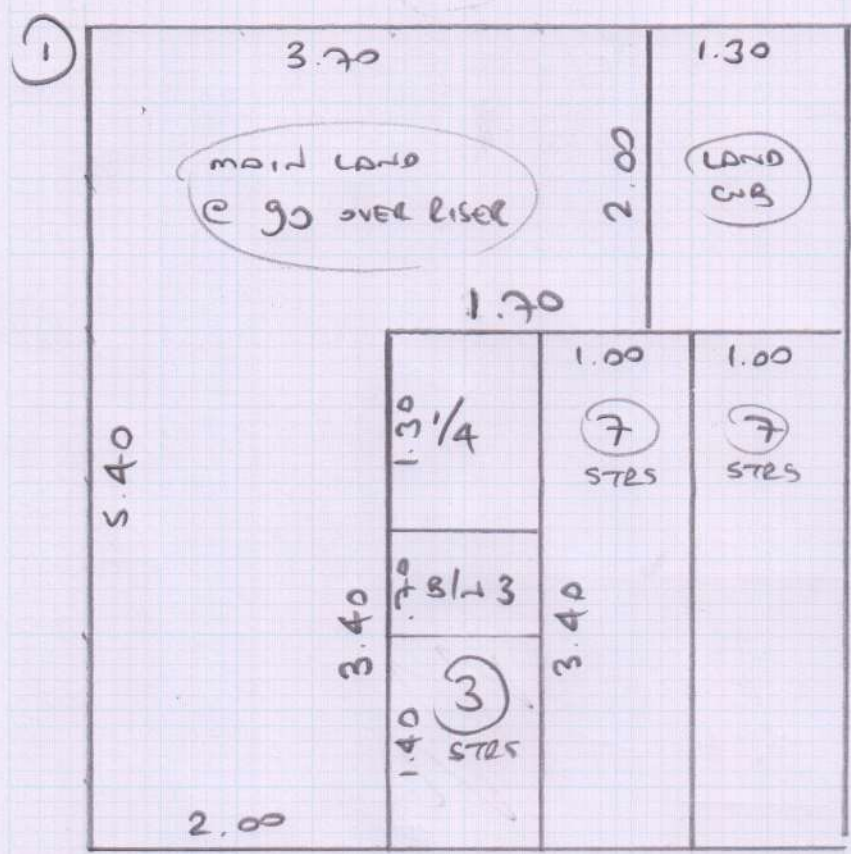 1
3.70
1.30
MAIN LAND
@ 90 OVER RISER
2.00
LAND
CUB
1.70
1.30
1/4
1.00
7
STRS
1.00
7
STRS
5.40
3.40
.70
B/N 3
3.40
1.40
3
STRS
2.00